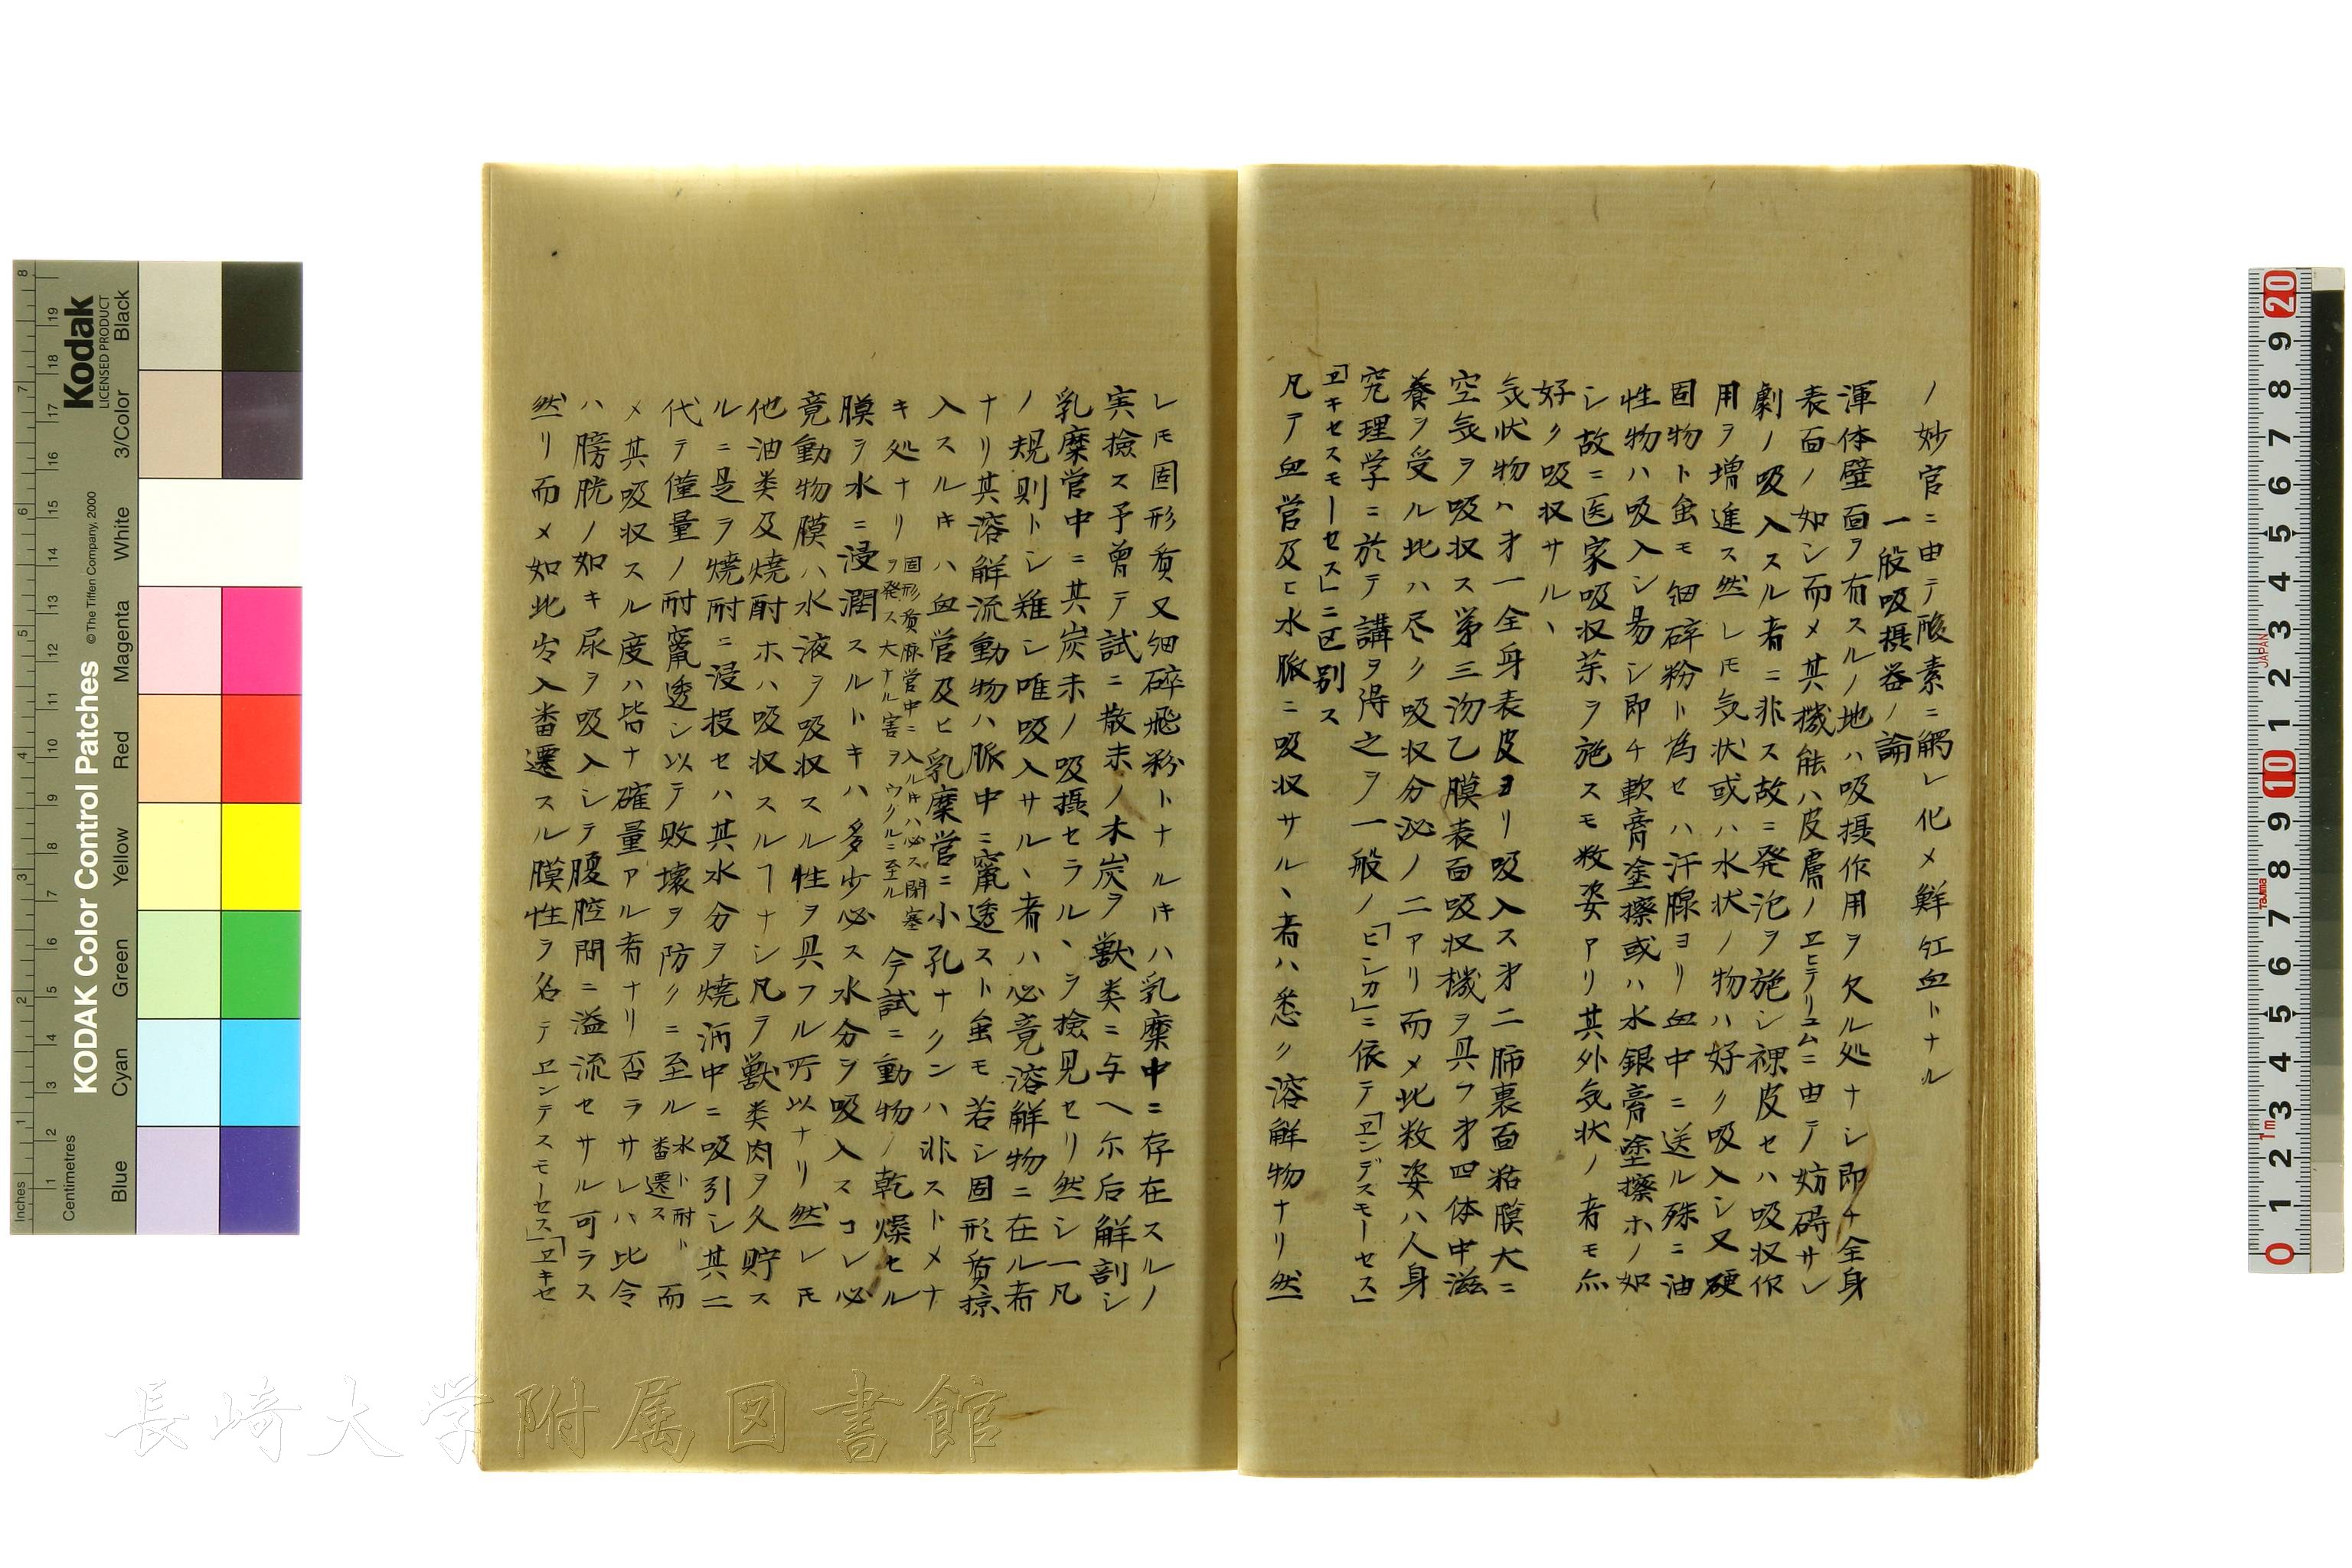 ノ妙官ニ由テ酸素ニ觸レ化メ鮮紅血トナル
一般吸摂器ノ論
渾体壁面ヲ有スルノ地ハ吸摂作用ヲ欠ル処ナシ即チ全身
表面ノ如シ而メ其機能ハ皮膚ノヱヒテリユムニ由テ妨碍サレ
劇ノ吸入スル者ニ非ス故ニ発泡ヲ施シ裸皮セハ吸収作
用ヲ増進ス然レ𪜈気状或ハ水状ノ物ハ好ク吸入シ又硬
固物ト虽モ細碎粉ト為セハ汗腺ヨリ血中ニ送ル殊ニ油
性物ハ吸入シ易シ即チ軟膏塗擦或ハ水銀膏塗擦ホノ如
シ故ニ医家吸収茱ヲ施スモ数姿アリ其外気状ノ者モ亦
好ク吸収サルヽ
気状物ハ才一全身表皮ヨリ吸入ス才二肺裏面粘膜大ニ
空気ヲ吸収ス第三沕乙膜表面吸収機ヲ具フ才四体中滋
養ヲ受ル此ハ尽ク吸収分泌ノ二アリ而メ此数姿ハ人身
究理学ニ於テ講ヲ得之ヲ一般ノ「ヒシカ」ニ依テ「ヱンデスモーセス」
「ヱキセスモーセス」ニ区別ス
凡テ血管及ヒ水脈ニ吸収サルヽ者ハ悉ク溶解物ナリ然
レ𪜈固形質又細碎飛粉トナルキハ乳糜中ニ存在スルノ
実撿ス予曽テ試ニ散末ノ木炭ヲ獣类ニ与ヘ尓后解剖シ
乳糜管中ニ其炭末ノ吸摂セラルヽヲ撿見セリ然シ一凡
ノ規則トシ難シ唯吸入サルヽ者ハ必竟溶解物ニ在ル者
ナリ其溶解流動物ハ脈中ニ竄透スト虽モ若シ固形質掠
入スルキハ血管及ヒ乳糜管ニ小孔ナクンハ非ストメナ
キ処ナリ固形質脈管中ニ入ルキハ必ス閉塞ヲ発ス大ナル害ヲウクルニ至ル今試ニ動物ノ乾燥セル
膜ヲ水ニ浸潤スルトキハ多少必ス水分ヲ吸入スコレ必
竟動物膜ハ水液ヲ吸収スル性ヲ具フル所以ナリ然レ𪜈
他油类及焼酎ホハ吸収スルヿナシ凡テ獣类肉ヲ久貯ス
ルニ是ヲ焼耐ニ浸投セハ其水分ヲ焼酒中ニ吸引シ其二
代テ僅量ノ耐竄透シ以テ敗壊ヲ防クニ至ル水ト耐ト畨遷ス而
メ其吸収スル度ハ皆ナ確量アル者ナリ否ラサレハ比令
ハ膀胱ノ如キ尿ヲ吸入シテ腹腔間ニ溢流セサル可ラス
然リ而メ如此出入畨遷スル膜性ヲ名テヱンテスモーセス」「ヱキセ
長崎大学附属図書館